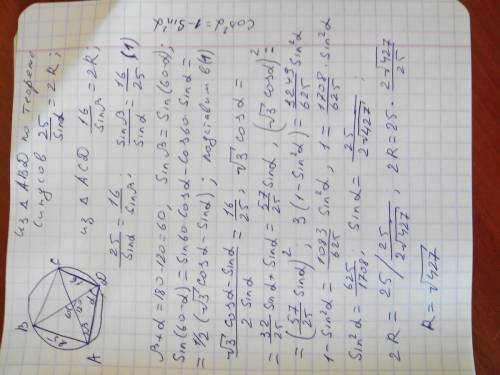 B
C
A
D
из △ ABD по теореме
синусов 25/sinα = 2R;
из △ ACD 16/sinβ = 2R;
25/sinα = 16/sinβ, sinβ/sinα = 16/25 (1)
β+α=180-120=60, sinβ = sin(60-α);
sin(60-α) = sin60·cosα - cos60·sinα =
= 1/2 (√3 cosα - sinα); подставим в(1)
cos²α = 1 - sin²α
(√3 cosα - sinα)/(2 sinα) = 16/25, √3 cosα =
= 32/25 sinα + sinα = 57/25 sinα, (√3 cosα)² =
= (57/25 sinα)², 3(1-sin²α) = 3249/625 sin²α
1-sin²α = 1083/625 sin²α, 1 = 1708/625 · sin²α
sin²α = 625/1708, sinα = 25/(2√427);
2R = 25 / 25/(2√427), 2R = 25 · 2√427/25
R = √427